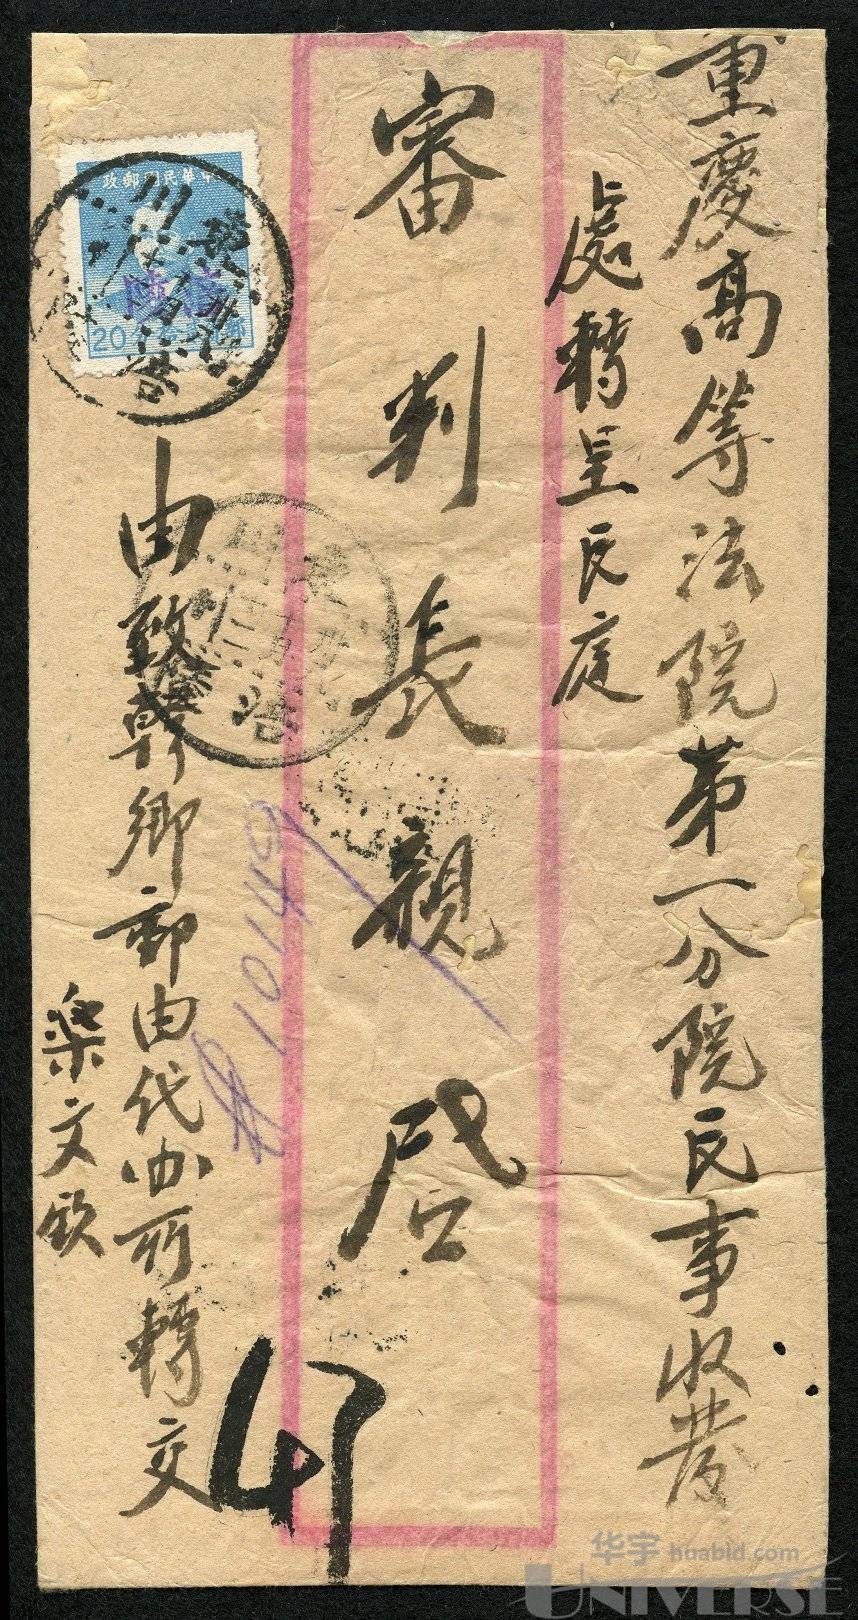 重慶高等法院第一分院民事收發
處轉呈民庭
審判長親啓
由致韓鄉郵由代办所轉交
梁文欽
中華民國郵政
20
東川
東川
#10149
47
华宇 huabid.com
UNIVERSE